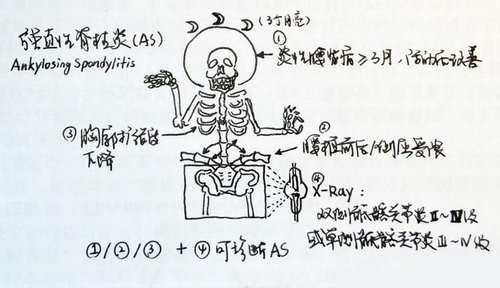 强直性脊柱炎(AS)
Ankylosing Spondylitis
(3个月亮)
①
炎性腰背痛≥3月,活动后改善
③ 胸廓扩张度
下降
②
腰椎前后/侧屈受限
④
X-Ray:
双侧骶髂关节炎Ⅱ~Ⅳ级
或单侧骶髂关节炎Ⅲ~Ⅳ级
①/②/③ + ④可诊断AS